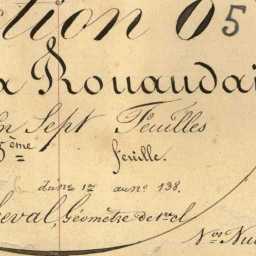 ction 5
a Rouaudai
en Sept Feuilles
5ème feuille.
du nº 1er au nº 138.
cheval, Géomètre de 1re cl
Nos Nu